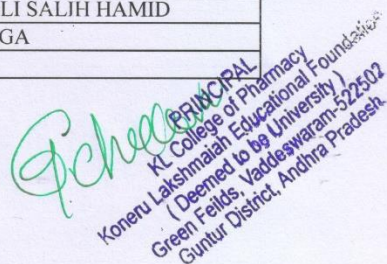 LI SALIH HAMID
GA
PRINCIPAL
KL College of Pharmacy
Koneru Lakshmaiah Educational Foundation
( Deemed to be University )
Green Feilds, Vaddeswaram-522502
Guntur District, Andhra Pradesh.